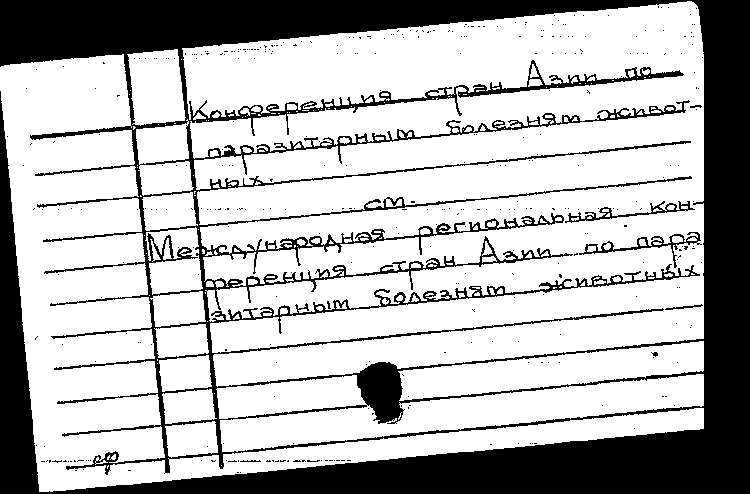 Конференция стран Азии по
паразитарным болезням живот-
ных.
см.
Международная региональная кон-
ференция стран Азии по пара
зитарным болезням животных